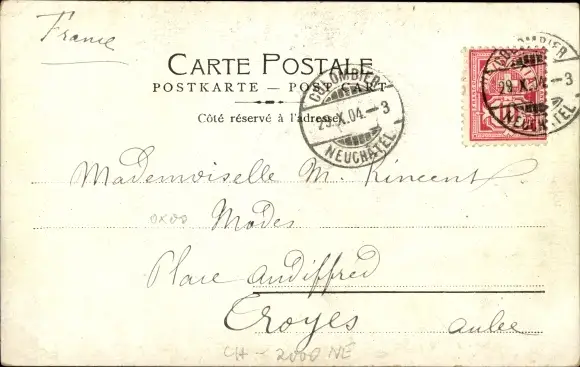 France
CARTE POSTALE
POSTKARTE — POST CART
Côté réservé à l'adresse
COLOMBIER
29.X.04.–3
NEUCHATEL
COLOMBIER
29.X.04.–3
NEUCHATEL
10
Mademoiselle M. Vincent
Modes
Place Audiffred
Troyes Aube
CH - 2000 NE